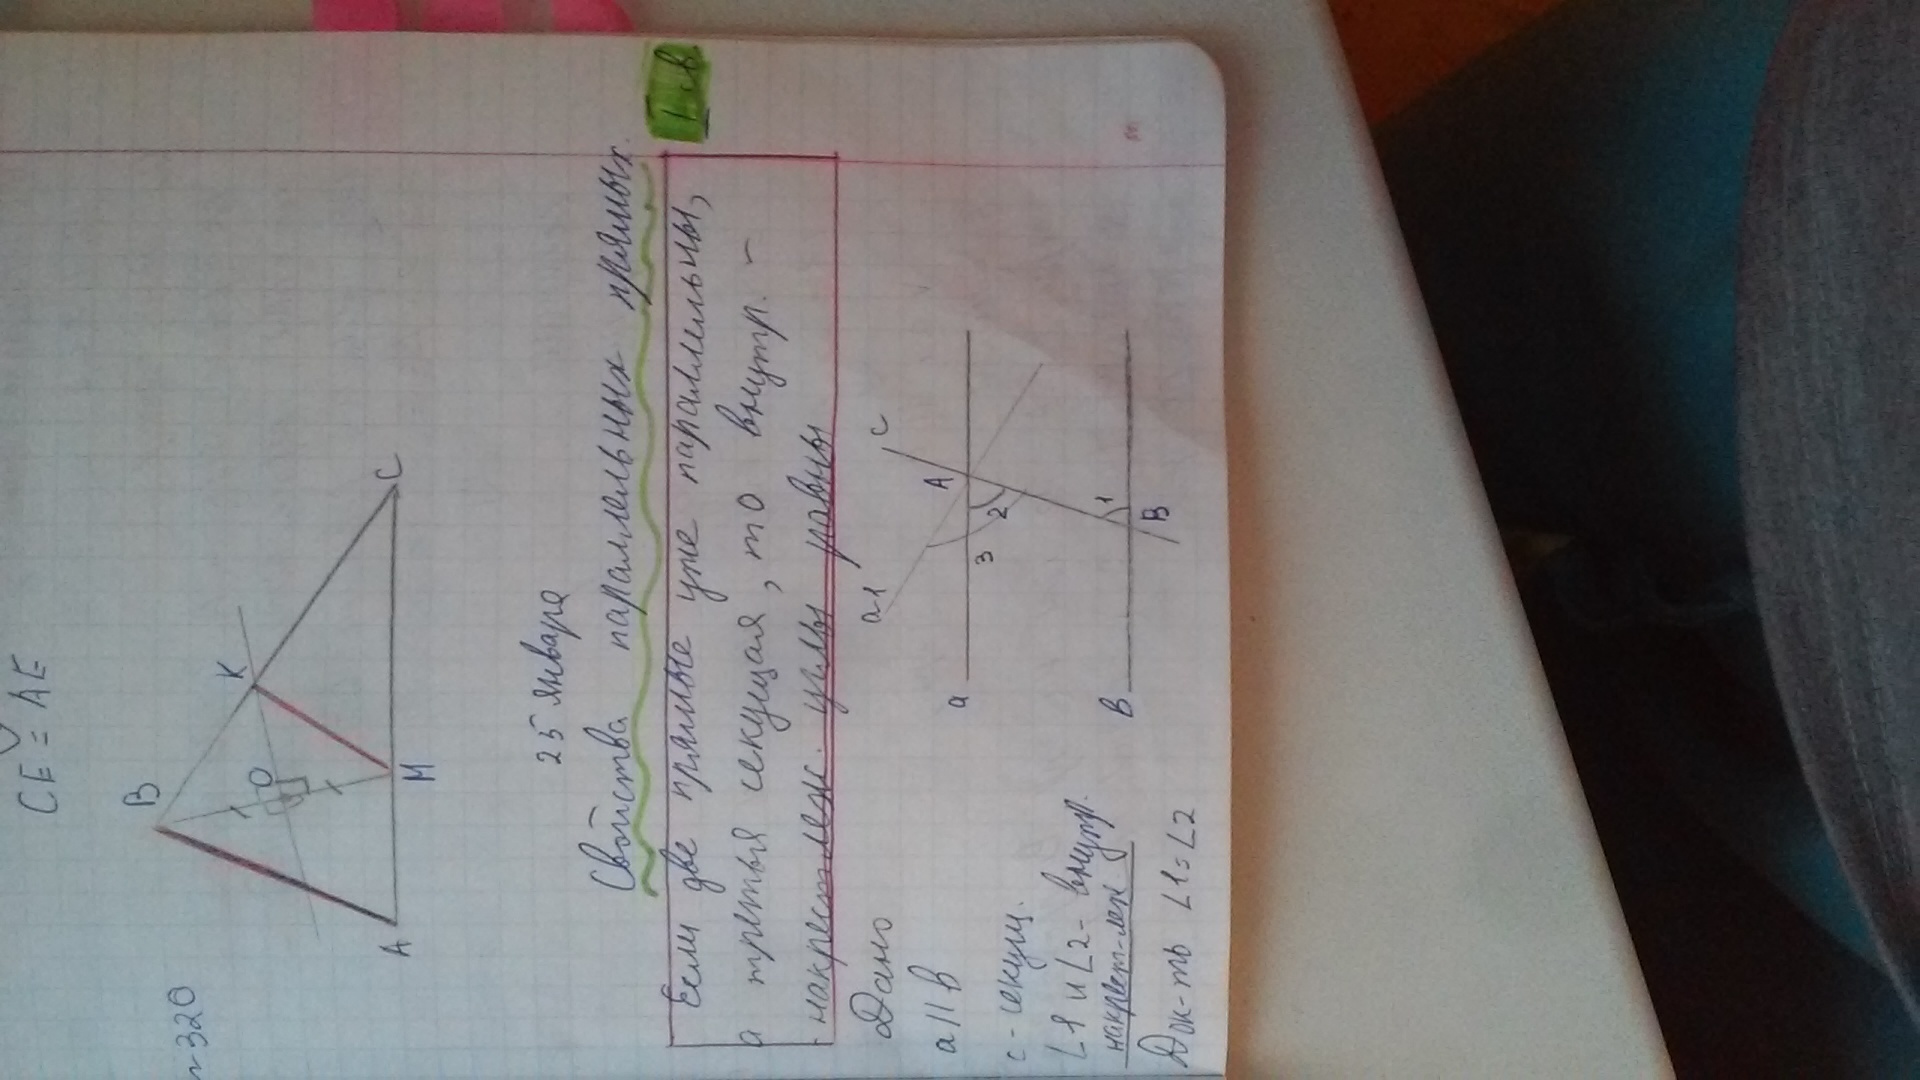 CE = AE
~320
B
K
O
A
M
C
25 января
Свойства параллельных прямых.
1 св
Если две прямые уже параллельны,
а третья секущая, то внутр. -
- накрест леж. углы равны
Дано
a || b
c - секущ.
∠1 и ∠2 - внутр.
накрест-леж.
Док-ть ∠1=∠2
c
a1
A
a
3
2
1
B
B